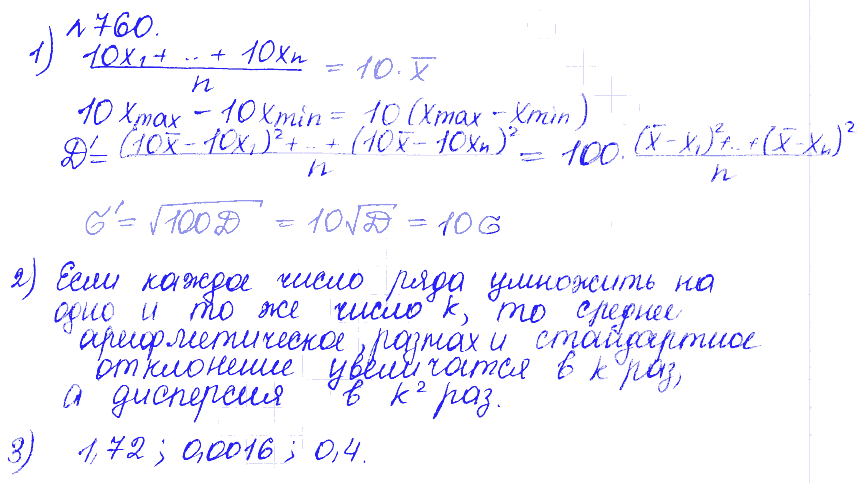 №760.
1) (10x₁ + .. + 10xₙ)/n = 10·x̄
10xmax − 10xmin = 10(xmax − xmin)
D' = ((10x̄ − 10x₁)² + .. + (10x̄ − 10xₙ)²)/n = 100·((x̄ − x₁)² + .. + (x̄ − xₙ)²)/n
σ' = √100D = 10√D = 10σ
2) Если каждое число ряда умножить на
одно и то же число k, то среднее
арифметическое, размах и стандартное
отклонение увеличатся в k раз,
а дисперсия в k² раз.
3) 1,72 ; 0,0016 ; 0,4.